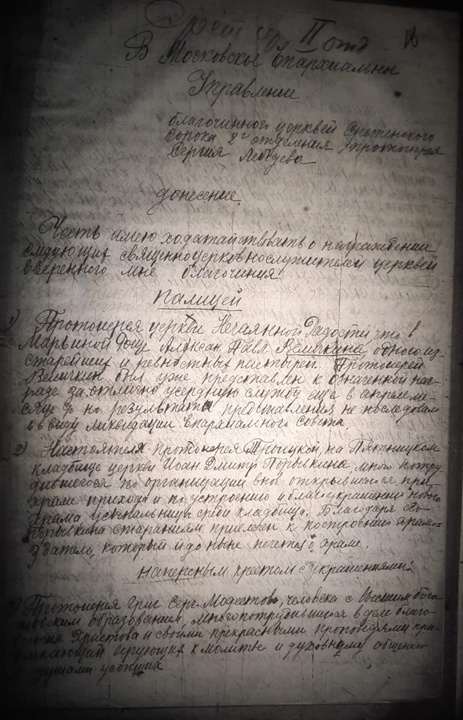 II отд
В Московское Епархиальное
Управление
благочинного церквей Сретенского
Сорока 2го отделения протоиерея
Сергия Лебедева
донесение.
Честь имею ходатайствовать о награждении
следующих священноцерковнослужителей церквей
вверенного мне благочиния
палицей
1) Протоиерея церкви Нечаянной Радости что в
Марьиной Роще Алексан Павл Величкина одного из
старейших и ревностных пастырей. Протоиерей
Величкин был уже представлен к означенной наг-
раде за отлично усердную службу еще в апреле ме-
сяце но результата представления не последовало
в виду ликвидации Епархиального Совета.
2) Настоятеля протоиерея Троицкой на Пятницком
кладбище церкви Иоан Дмитр много потру
дившегося по организации вновь открывшегося при
храме прихода и по устроению и благоукрашению нового
храма усыпальницы среди кладбища. Благодаря его
стараниям привлечен к построению храма
который и доныне печется о храме.
наперсным крестом с украшениями:
1) Протоиерея Григ Серг Модестова, человека с высшим бого
словским образованием, многопотрудившегося в деле благо
Христова и своими прекрасными проповедями при
влекающий верующих к молитве и духовному общению
с душами усопших